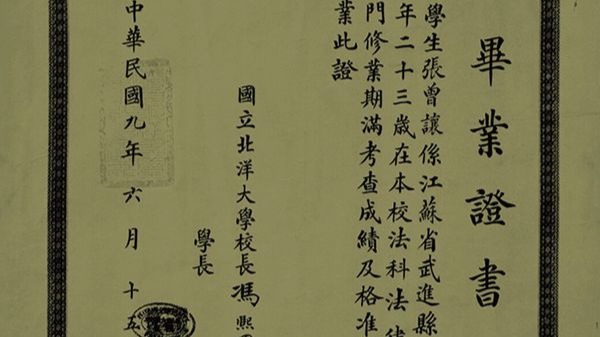 畢業證書
學生張曾讓係江蘇省武進縣
年二十三歲在本校法科法律
門修業期滿考查成績及格准
業此證
國立北洋大學校長馮熙
學長
中華民國九年六月十五